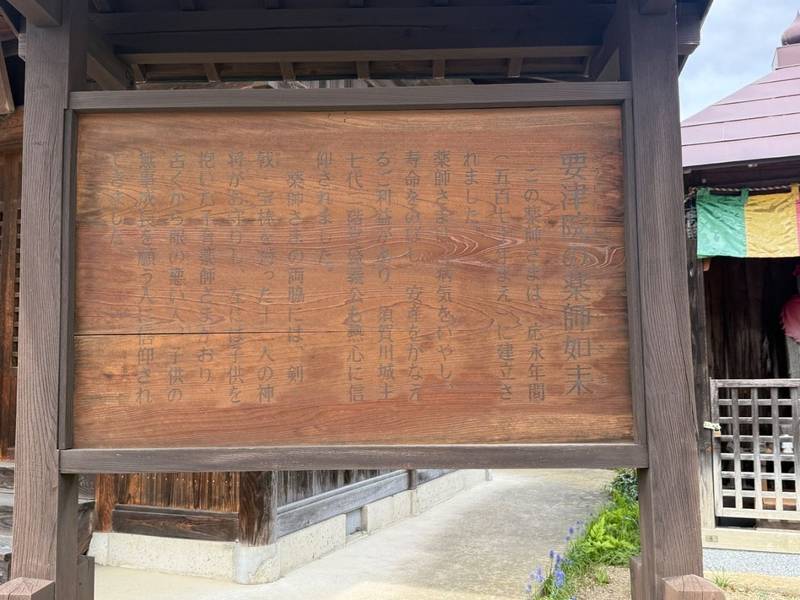 要津院の薬師如来
この薬師さまは、応永年間
(五百七十年まえ)に建立さ
れました。
薬師さまは、病気をいやし、
寿命をのばし、安産をかなえ
るご利益があり、須賀川城主
七代、階盛義公も熱心に信
仰されました。
薬師さまの両脇には、剣、
戟、宝棒を持った十二人の神
将がお守りし、左には子供を
抱いた子育薬師さまがおり、
古くから眼の悪い人、子供の
無事成長を願う人に信仰され
てきました。